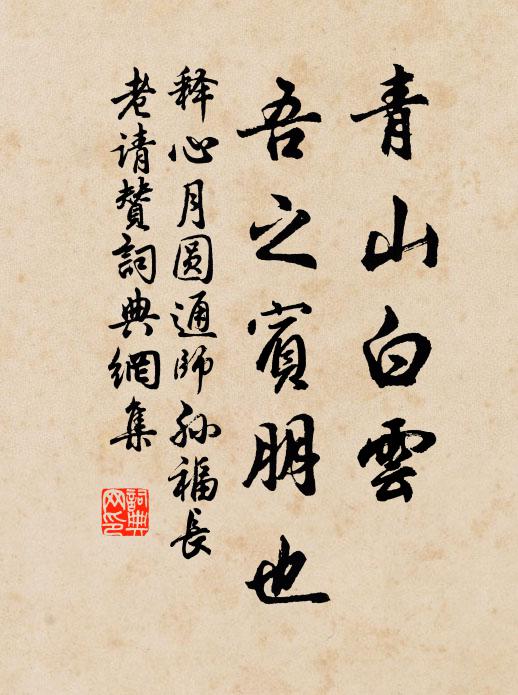 青山白雲
吾之賓朋也
释心月圓通師孙福長
老请賛詞典網集
詞典网印